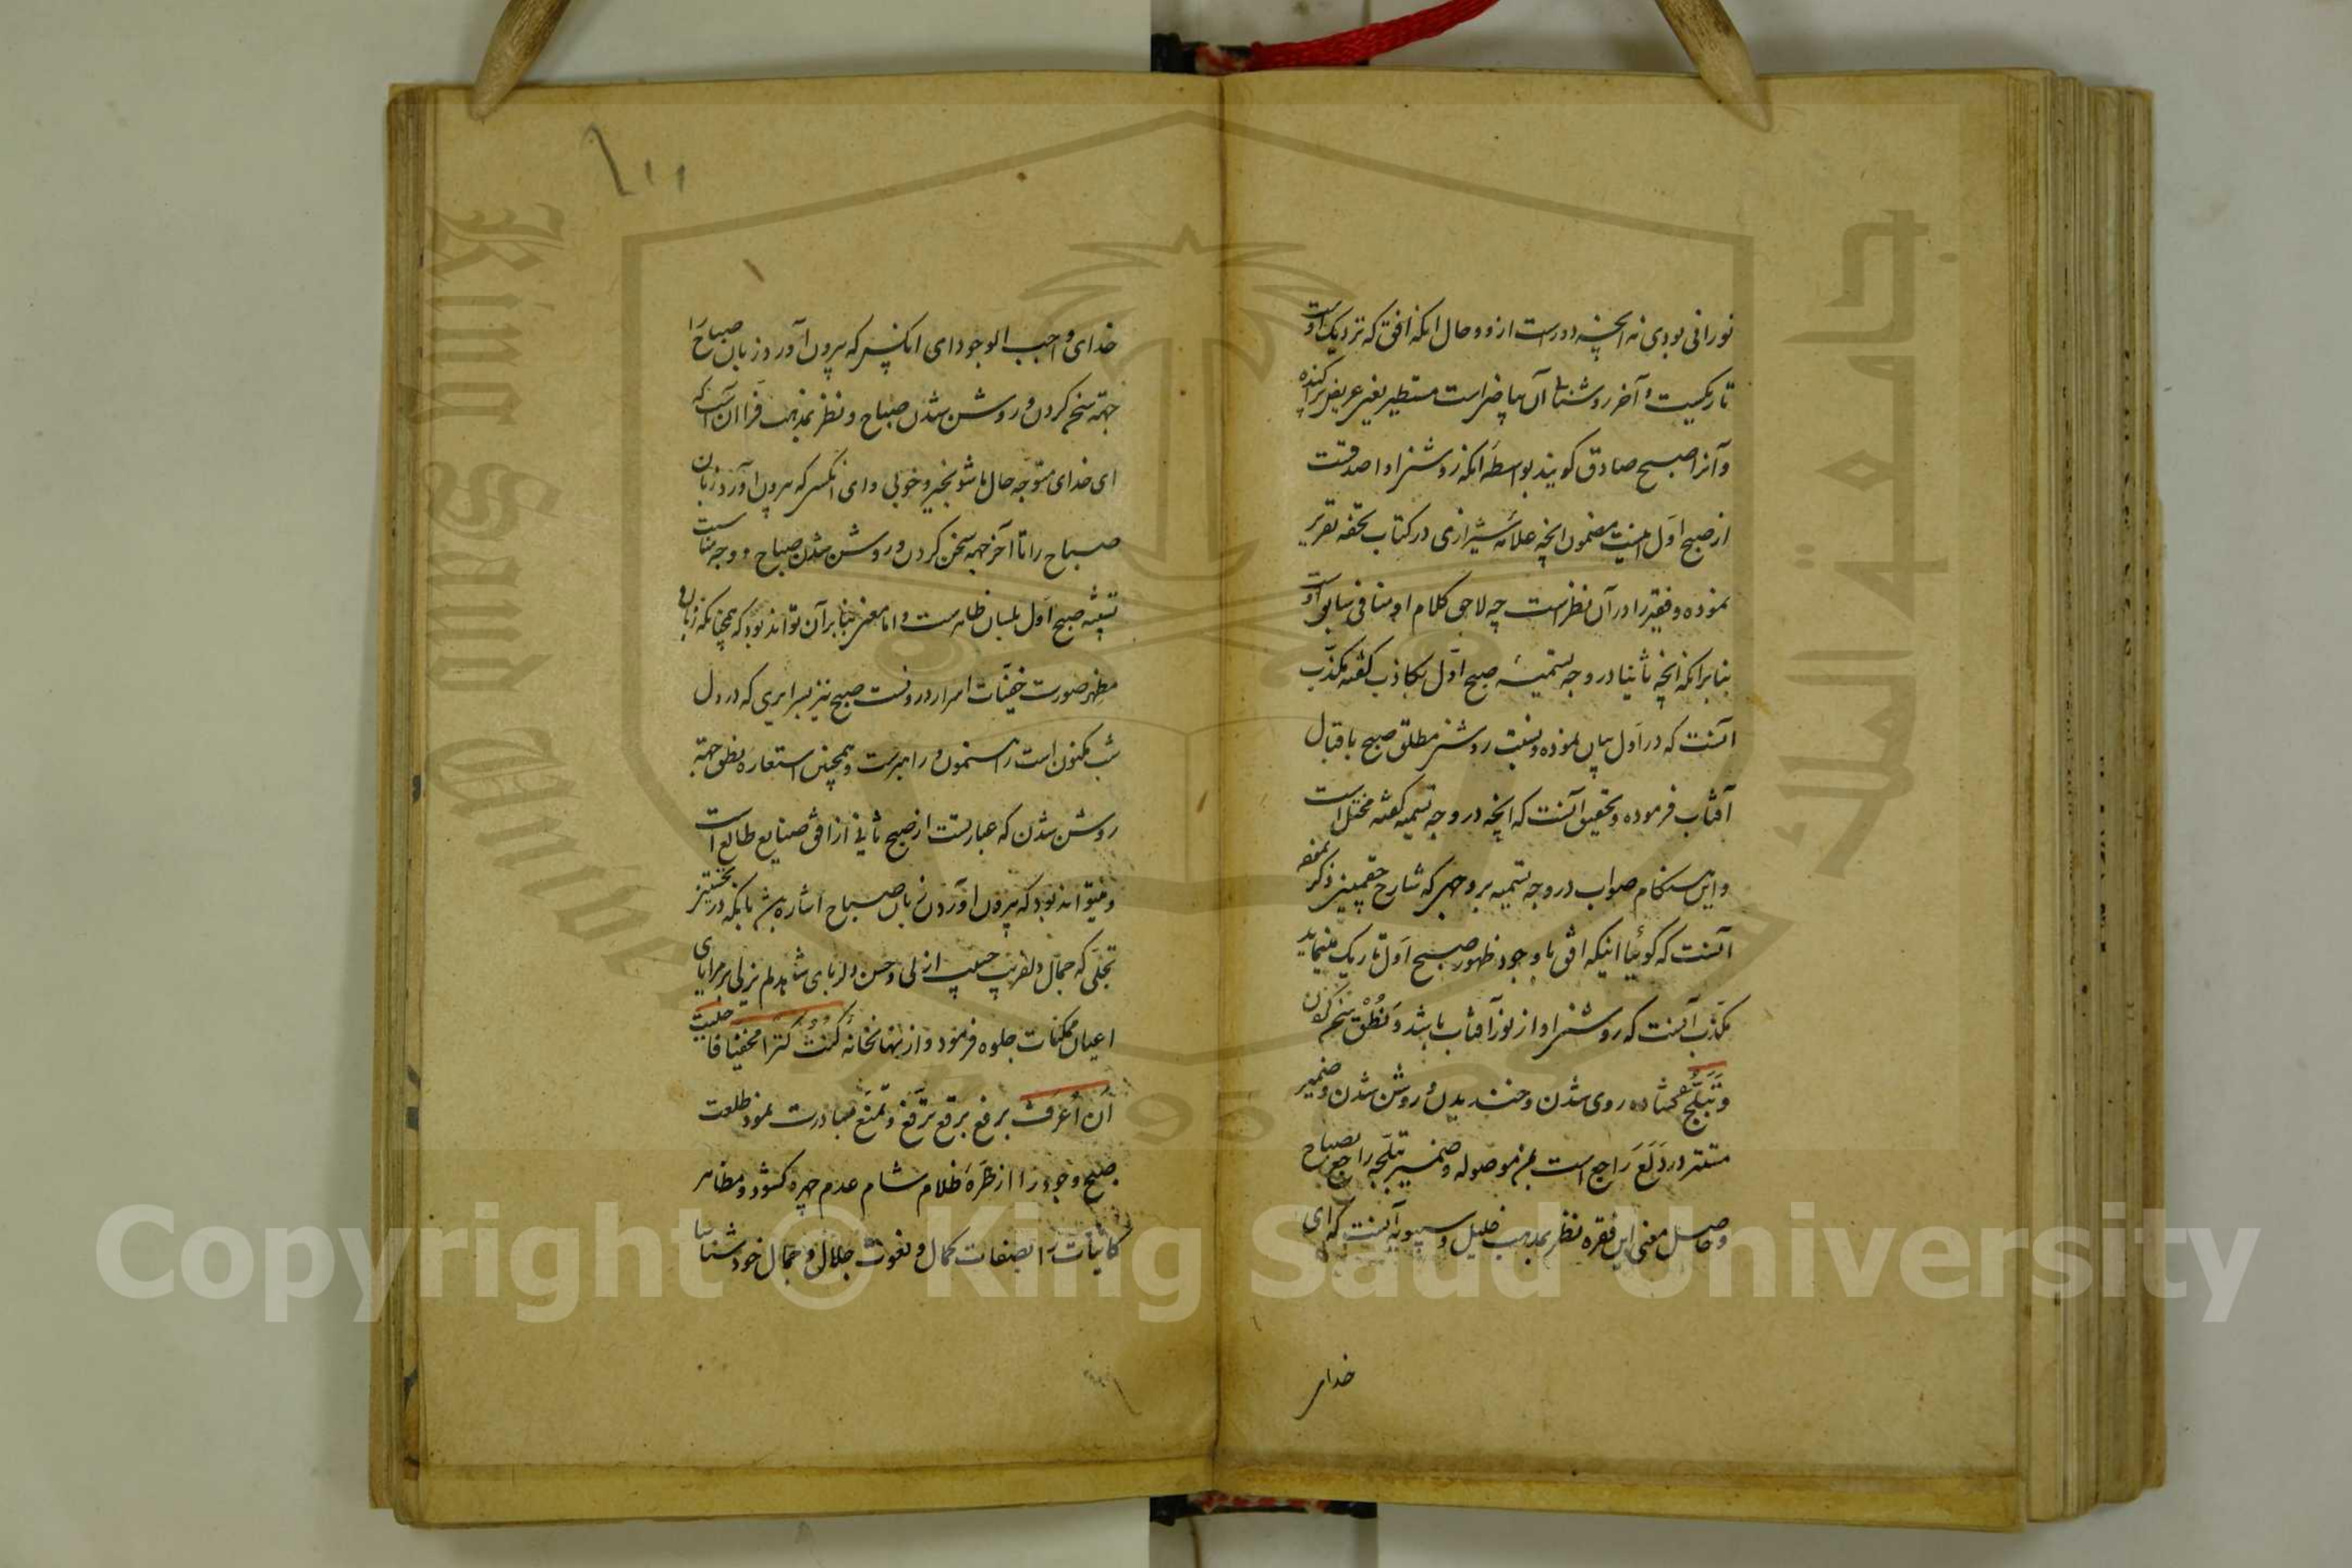 نورانی بودی نه آنچه دورست ازو و حال آنکه افق که نزدیک اوست
تاریکیست و آخر روشنائی آن بیاض است مستطیر یعنی عریض پراکنده
و آنرا صبح صادق کویند بواسطه آنکه روشنی او اصدقست
از صبح اول اینست مضمون آنچه علامه شیرازی در کتاب تحفه تقریر
نموده و فقیر را در آن نظرست چه لاحق کلام او منافی سابق اوست
بنابر آنکه آنچه ثانیا در وجه تسمیه صبح اول بکاذب کفته مکذب
آنست که در اول بیان نموده و نسبت روشنی مطلق صبح باقبال
آفتاب فرموده و تحقیق آنست که آنچه در وجه تسمیه کفته مختل است
و این هنکام صواب در وجه تسمیه بر وجهی که شارح چغمینی ذکر نموده
آنست که کوئیا اینکه افق با وجود ظهور صبح اول تاریک مینماید
مکذب آنست که روشنی او از نور آفتاب باشد و نطق سخن کردن
و تبلج کشاده روی شدن و خندیدن و روشن شدن و ضمیر
مستتر در دلع راجع است بمن موصوله و ضمیر تبلجه راجع بصباح
و حاصل معنی این فقره نظر بمذهب خلیل و سیبویه آنست که ای
خدای
خدای واجب الوجود ای آنکسی که بیرون آورد زبان صباح را
جهة سخن کردن و روشن شدن صباح و نظر بمذهب فرا آن است که
ای خدای متوجه حال ما شو بخیر و خوبی و ای آنکسی که بیرون آورد زبان
صباح را تا آخر جهة سخن کردن و روشن شدن صباح و وجه مناسبت
تشبیه صبح اول بلسان ظاهرست و اما معنی بنابر آن تواند بود که همچنانکه زبان
مظهر صورت خفیات اسرار درونست صبح نیز بسرایری که در دل
شب مکنون است رهنمون و راهبرست و همچنین استعاره نطق جهة
روشن شدن که عبارتست از صبح ثانی از افق صنایع طالع است
و میتواند بود که بیرون آوردن زبان صباح اشاره باشد بآنکه در نخستین
تجلی که جمال دلفریب حبیب ازلی و حسن دلربای شاهد لم یزلی بر مرایای
اعیان ممکنات جلوه فرمود و از نهانخانه کُنتُ کَنزًا مخفیّا فاحببت
اَن اُعرَفَ برفع برقع ترفّع و تمنّع مبادرت نمود طلعت
صبح وجود را از طرّه ظلام شام عدم چهره کشود و مظاهر
کاینات را بصفات کمال و نعوت جلال و جمال خود شناسا
Copyright © King Saud University